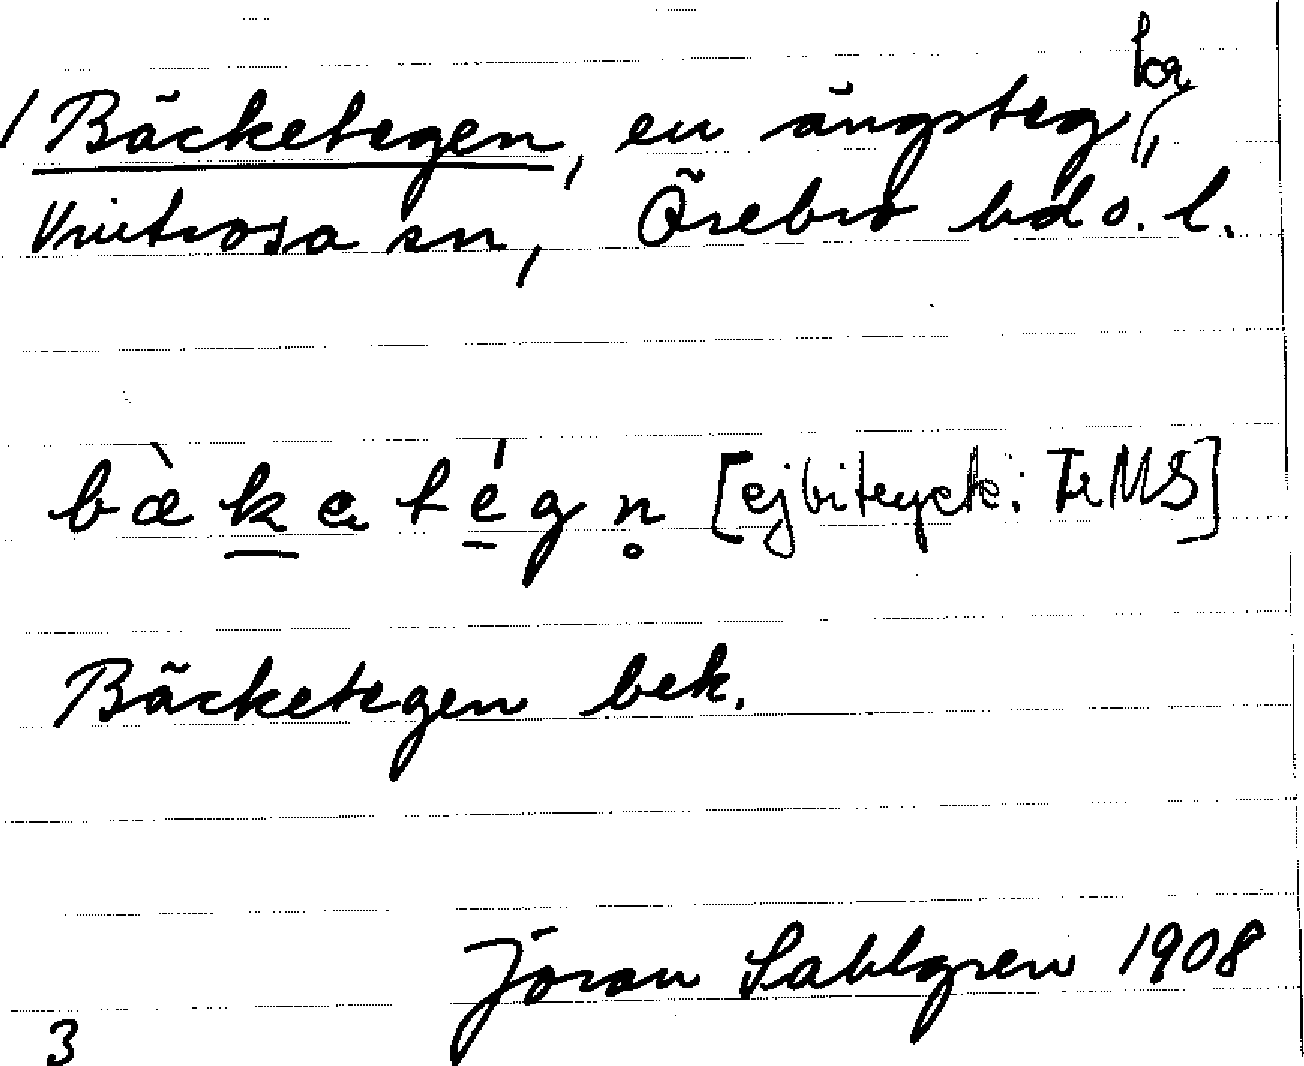 Bäcketegen, en ängsteg,
Vintrosa sn, Örebro hd o. l.
bæ̀katé̱gn̥ [ej bitryck: TrMS]
Bäcketegen bek.
Jöran Sahlgren 1908
3